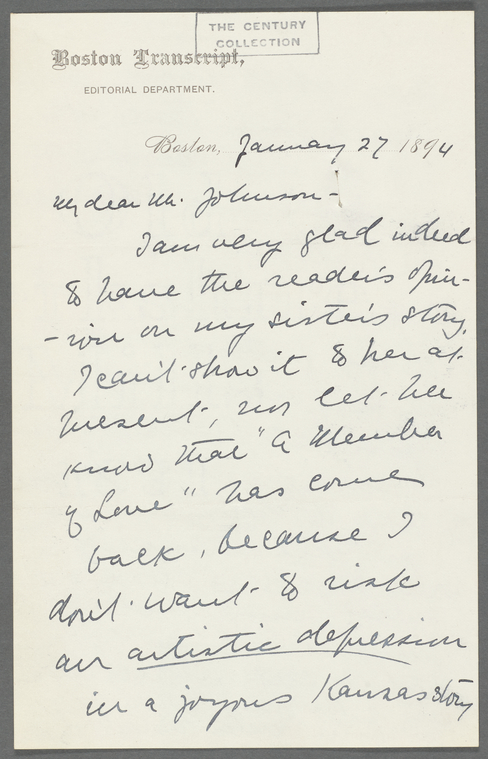 THE CENTURY
COLLECTION
Boston Transcript,
EDITORIAL DEPARTMENT.
Boston, January 27 1894
My dear Mr. Johnson-
I am very glad indeed
to have the reader's opin-
-ion on my sister's story.
I can't show it to her at
present, nor let her
know that "A Member
of Love" has come
back, because I
don't want to risk
an artistic depression
in a joyous Kansas story